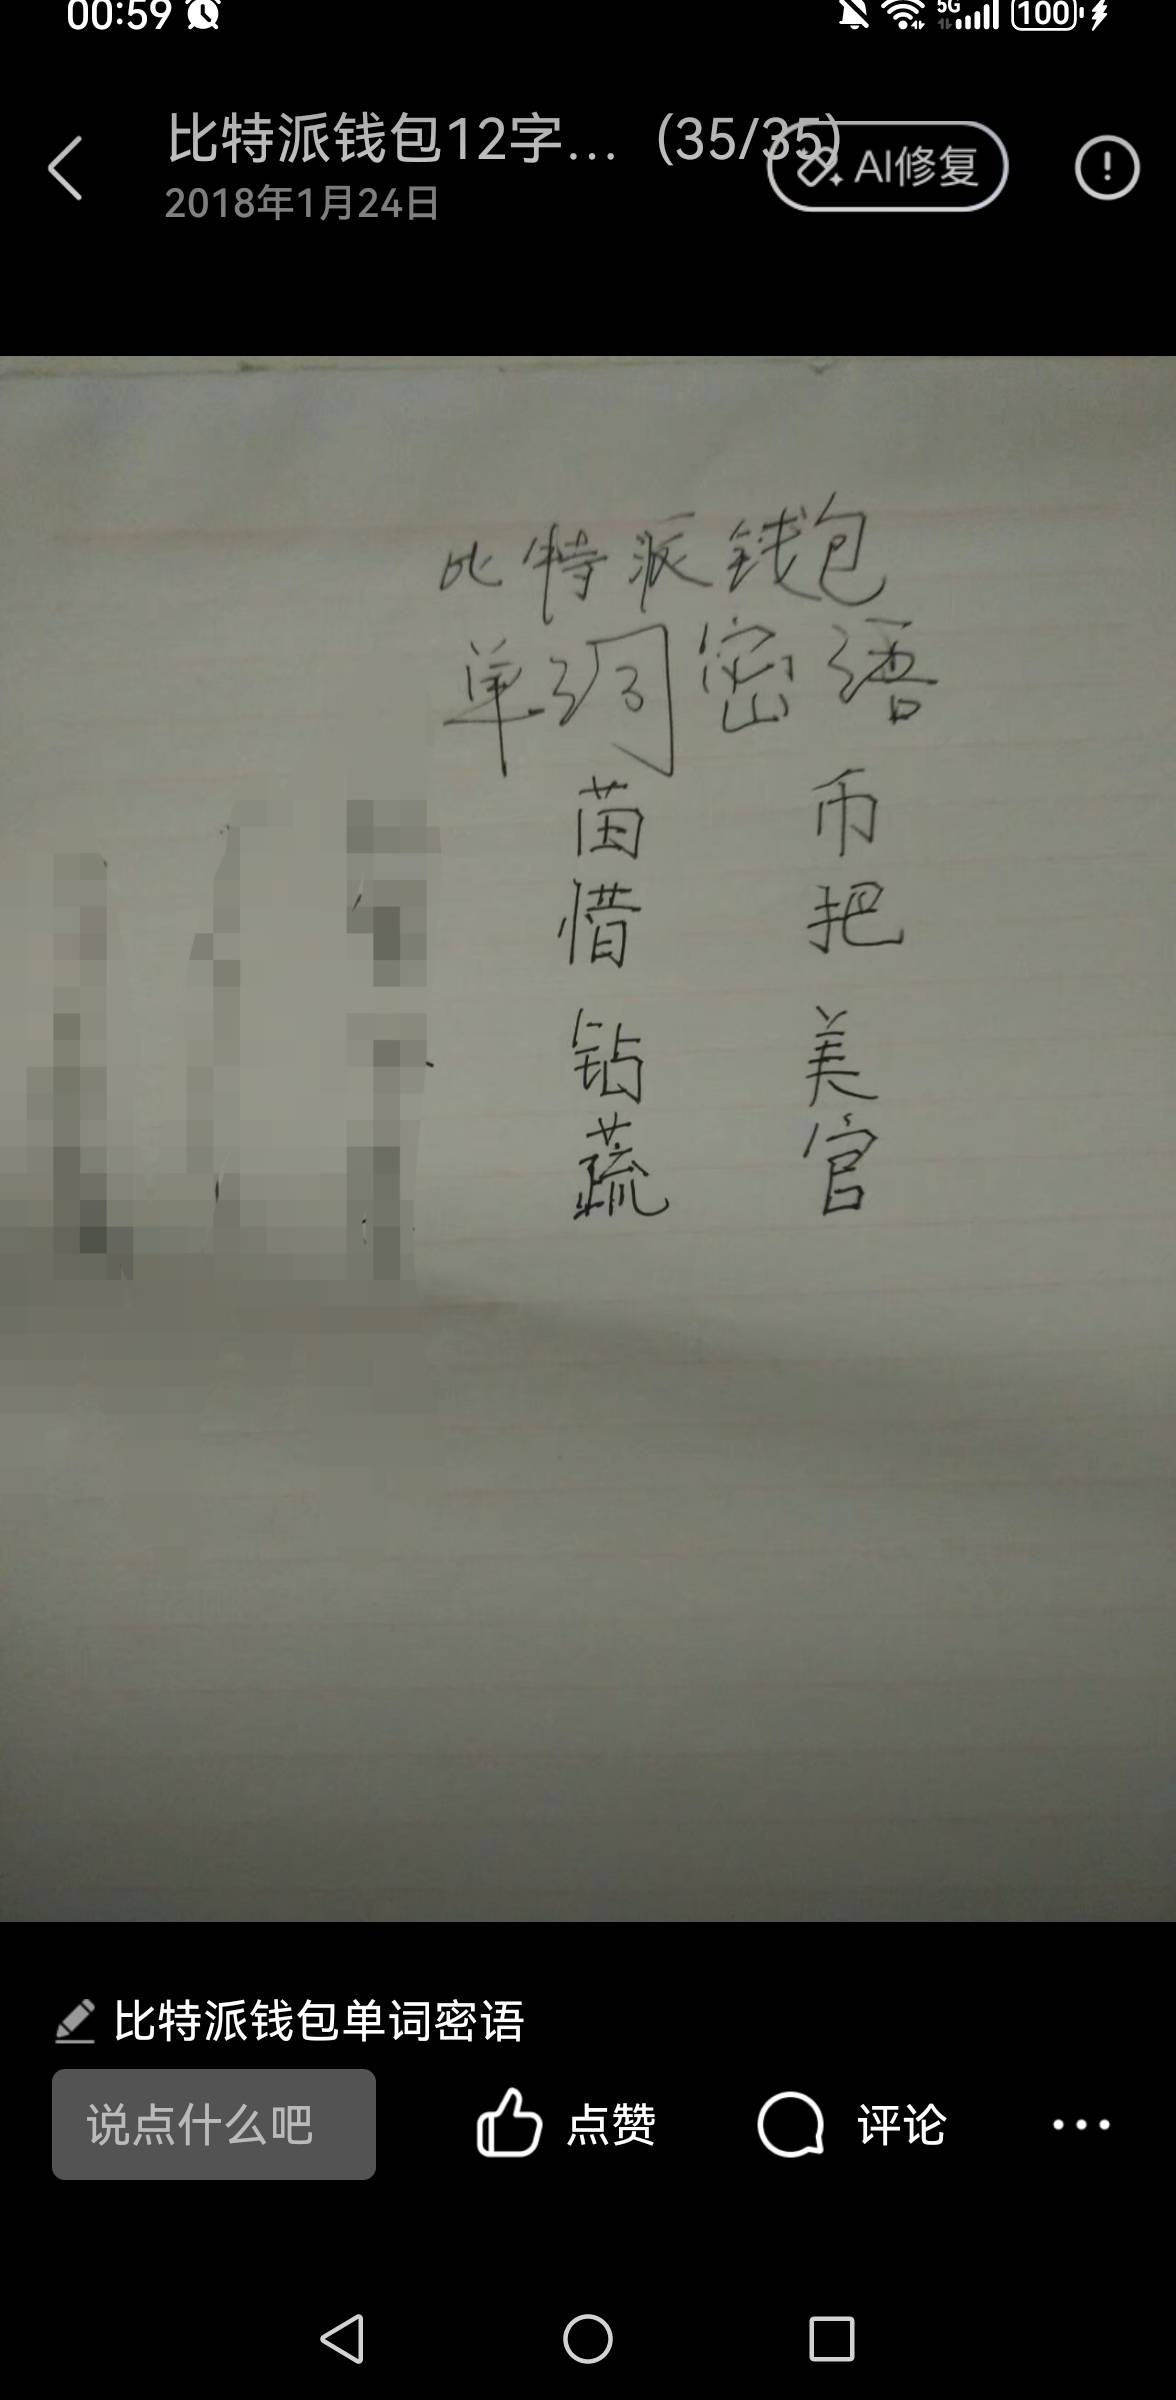 00:59
5G 100
比特派钱包12字… (35/35)
AI修复
2018年1月24日
比特派钱包
单词密语
苗 币
惜 把
钻 美
蔬 官
比特派钱包单词密语
说点什么吧 点赞 评论